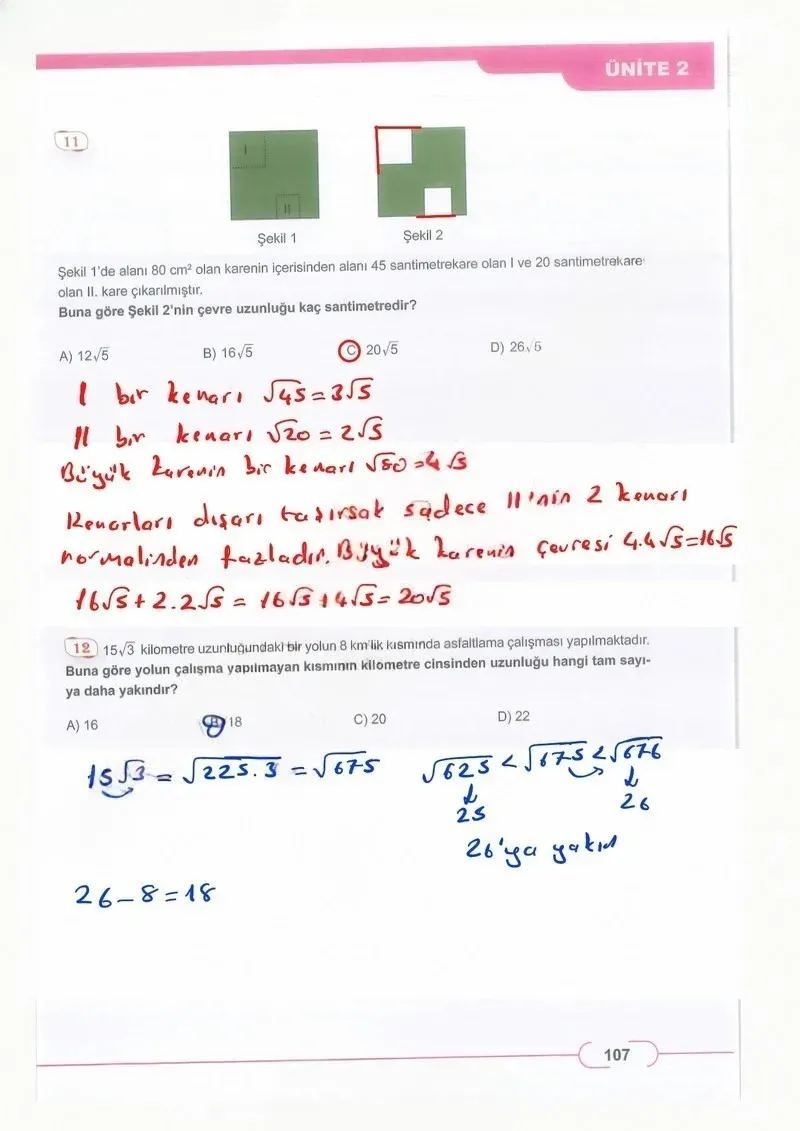 ÜNİTE 2
11
I
II
Şekil 1
Şekil 2
Şekil 1'de alanı 80 cm² olan karenin içerisinden alanı 45 santimetrekare olan I ve 20 santimetrekare
olan II. kare çıkarılmıştır.
Buna göre Şekil 2'nin çevre uzunluğu kaç santimetredir?
A) 12√5 B) 16√5 C) 20√5 D) 26√5
I bir kenarı √45 = 3√5
II bir kenarı √20 = 2√5
Büyük karenin bir kenarı √80 = 4√5
Kenarları dışarı taşırsak sadece II'nin 2 kenarı
normalinden fazladır. Büyük karenin çevresi 4.4√5=16√5
16√5 + 2.2√5 = 16√5 + 4√5 = 20√5
12 15√3 kilometre uzunluğundaki bir yolun 8 km'lik kısmında asfaltlama çalışması yapılmaktadır.
Buna göre yolun çalışma yapılmayan kısmının kilometre cinsinden uzunluğu hangi tam sayı-
ya daha yakındır?
A) 16 B) 18 C) 20 D) 22
15√3 = √225.3 = √675 √625 < √675 < √676
25 26
26'ya yakın
26 - 8 = 18
107